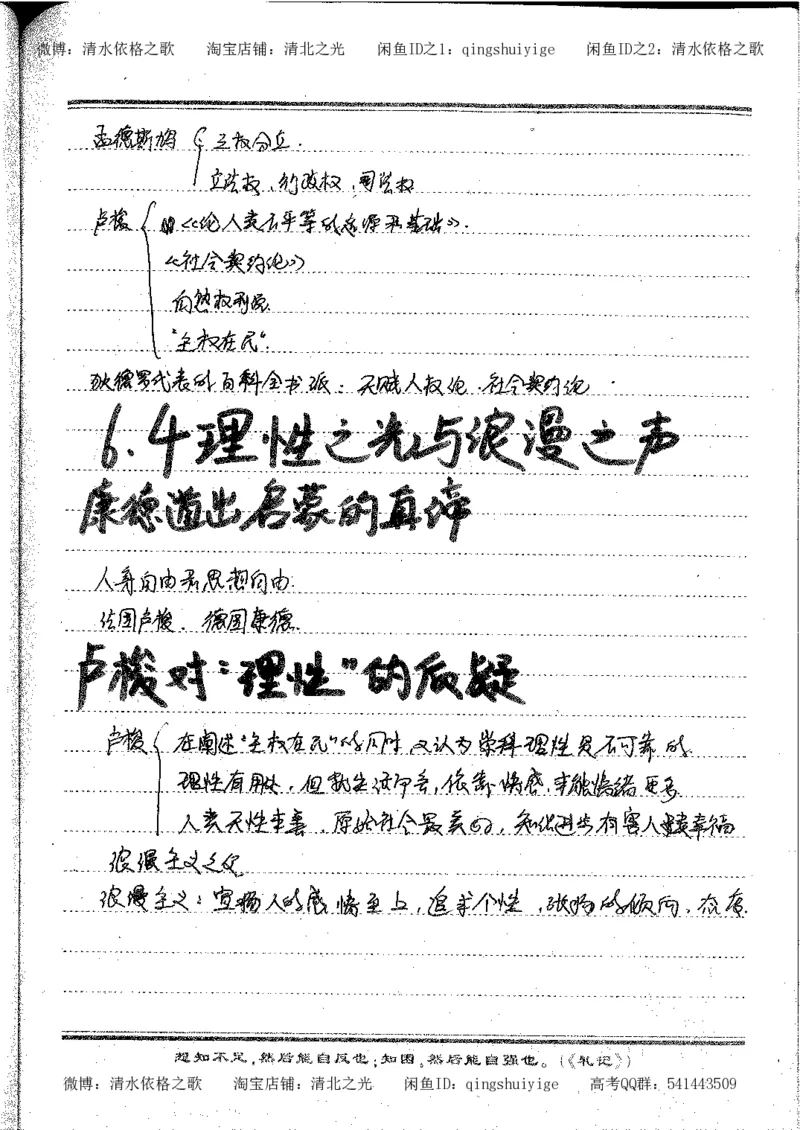 微博：清水依格之歌 淘宝店铺：清北之光 闲鱼ID之1：qingshuiyige 闲鱼ID之2：清水依格之歌
孟德斯鸠 三权分立.
立法权，行政权，司法权
卢梭 《论人类不平等的起源和基础》.
《社会契约论》
自然权利说
"主权在民".
狄德罗代表的百科全书派：天赋人权论.社会契约论
6.4理性之光与浪漫之声
康德道出启蒙的真谛
人身自由和思想自由
法国卢梭、德国康德.
卢梭对"理性"的质疑
卢梭 在阐述"主权在民"的同时又认为学科理性是不可靠的
理性有用处，但就生活而言，依靠情感，本能情绪更多
人类天性本善，原始社会最美的，知识进步有害人类幸福
浪漫主义之父
浪漫主义：宣扬人的感情至上，追求个性，张扬的倾向、态度.
知不足，然后能自反也；知困，然后能自强也。(《礼记》)
微博：清水依格之歌 淘宝店铺：清北之光 闲鱼ID：qingshuiyige 高考QQ群：541443509